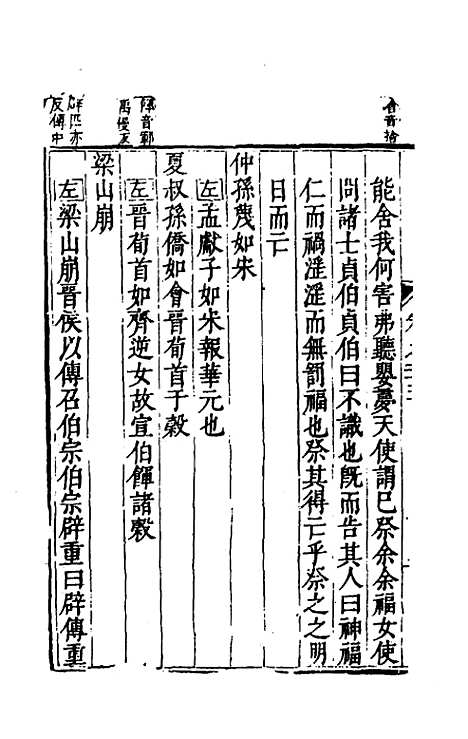 舍音捨
能舍我何害弗聽嬰夢天使謂已祭余余福女使
問諸士貞伯貞伯曰不識也旣而告其人曰神福
仁而禍淫淫而無罰福也祭其得亡乎祭之之明
日而亡
仲孫蔑如宋
左孟獻子如宋報華元也
夏叔孫僑如會晉荀首于穀
左晉荀首如齊逆女故宣伯餫諸穀
梁山崩
左梁山崩晉侯以傳召伯宗伯宗辟重曰辟傳重
辟匹亦
反傳中